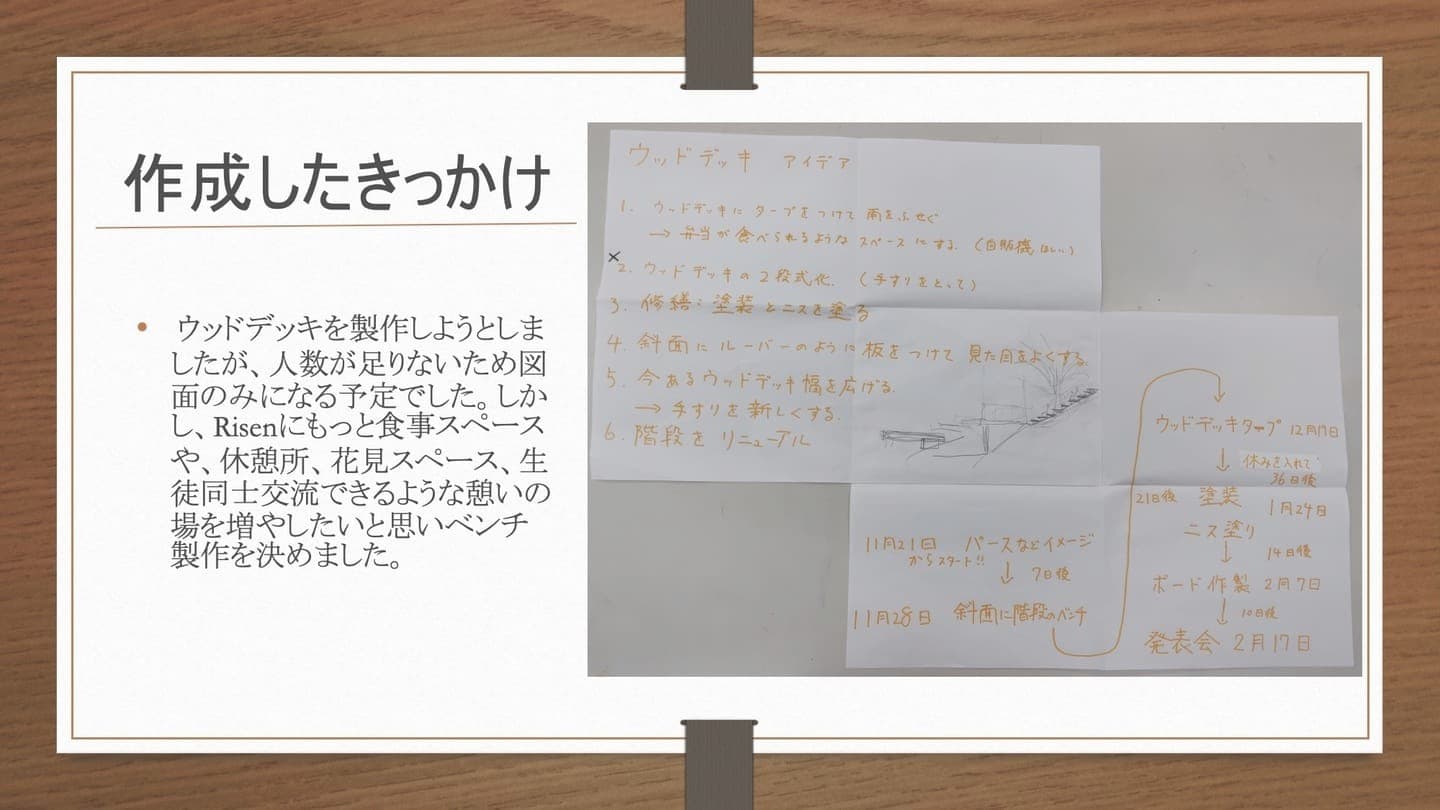 作成したきっかけ
• ウッドデッキを製作しようとしま
したが、人数が足りないため図
面のみになる予定でした。しか
し、Risenにもっと食事スペース
や、休憩所、花見スペース、生
徒同士交流できるような憩いの
場を増やしたいと思いベンチ
製作を決めました。
ウッドデッキ アイデア
1. ウッドデッキに タープをつけて 雨をふせぐ
→ 弁当が食べられるような スペースにする. (自販機 ほしい)
×
2. ウッドデッキの2段式化. (手すりをとって)
3. 修繕: 塗装とニスを塗る
4. 斜面に ルーバーのように 板をつけて 見た目をよくする.
5. 今あるウッドデッキ幅を広げる.
→ 手すりを新しくする.
6. 階段を リニューアル
11月21日 パースなどイメージ
からスタート!!
↓ 7日後
11月28日 斜面に階段のベンチ
ウッドデッキタープ 12月17日
↓ 休みを入れて
36日後
21日後 塗装 1月24日
ニス塗り
↓ 14日後
ボード作製 2月7日
↓ 10日後
発表会 2月17日